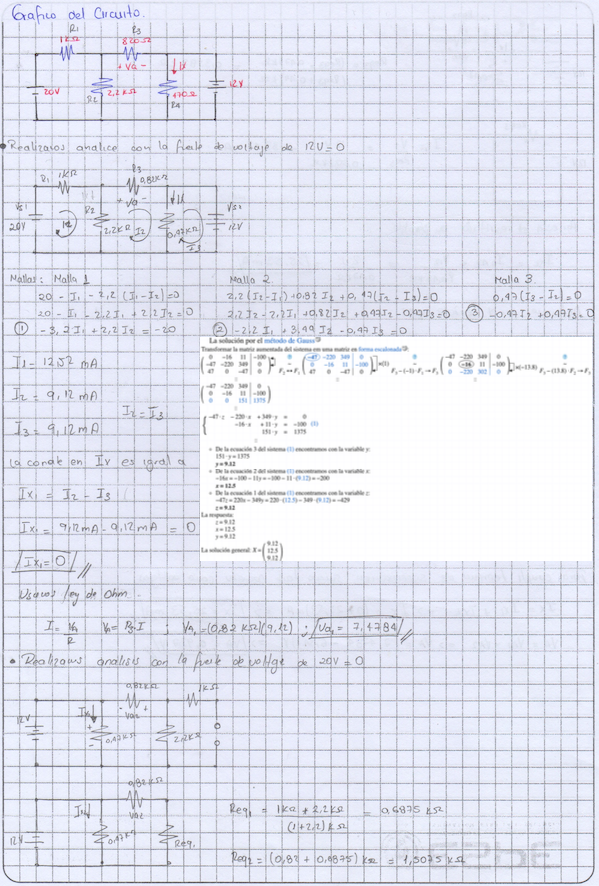 Grafico del Circuito.
R1
1KΩ
R3
820Ω
+ Va -
Ix
20V
R2
2,2KΩ
470Ω
R4
12V
Realizamos analice con la fuente de voltaje de 12V=0
R1 1KΩ
R3
0,82KΩ
+ Va -
Ix
Vs1
20V
R2
2,2KΩ
I2
0,47KΩ
I3
Vs2
12V
Mallas: Malla 1
20 - I1 - 2,2 (I1-I2)=0
20 - I1 - 2,2 I1 + 2,2 I2 = 0
① -3,2 I1 + 2,2 I2 = -20
Malla 2
2,2(I2-I1)+0,82 I2 + 0,47(I2 - I3)=0
2,2 I2 - 2,2 I1 + 0,82 I2 + 0,47 I2 - 0,47 I3=0
② -2,2 I1 + 3,49 I2 - 0,47 I3 = 0
Malla 3
0,47(I3 - I2)=0
③ -0,47 I2 + 0,47 I3=0
La solución por el método de Gauss
Transformar la matriz aumentada del sistema en una matriz en forma escalonada
0 -16 11 -100
-47 -220 349 0
47 0 -47 0
F2 ↔ F1
-47 -220 349 0
0 -16 11 -100
47 0 -47 0
×(1)
F3 - (-1)·F1 → F3
-47 -220 349 0
0 -16 11 -100
0 -220 302 0
×(-13.8)
F3 - (13.8)·F2 → F3
-47 -220 349 0
0 -16 11 -100
0 0 151 1375
-47·z -220·x +349·y = 0
-16·x +11·y = -100 (1)
151·y = 1375
De la ecuación 3 del sistema (1) encontramos con la variable y:
151·y = 1375
y = 9.12
De la ecuación 2 del sistema (1) encontramos con la variable x:
-16x = -100 - 11y = -100 - 11·(9.12) = -200
x = 12.5
De la ecuación 1 del sistema (1) encontramos con la variable z:
-47z = 220x - 349y = 220·(12.5) - 349·(9.12) = -429
z = 9.12
La respuesta:
z = 9.12
x = 12.5
y = 9.12
La solución general: X =
9.12
12.5
9.12
I2 = 9,12 mA
I2 = I3
I3 = 9,12 mA
la corriente en Ix es igual a
Ix1 = I2 - I3
Ix1 = 9,12mA - 9,12 mA = 0
Ix1 = 0
Usamos ley de Ohm.
I = Va/R Va = R3·I ; Va1 = (0,82 KΩ)(9,12) ; Va1 = 7,4784
Realizamos analisis con la fuente de voltge de 20V = 0
0,82KΩ
1KΩ
- Va2 +
12V
Ix2
+
-
0,47KΩ
2,2KΩ
0,82KΩ
Va2
12V
0,47KΩ
Req1
Req1 = 1KΩ * 2,2KΩ / (1+2,2) KΩ = 0,6875 KΩ
Req2 = (0,82 + 0,6875) KΩ = 1,5075 KΩ